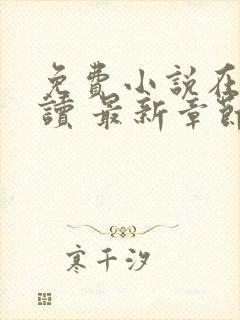 免費小說在
讀 最新章節
寒千汐